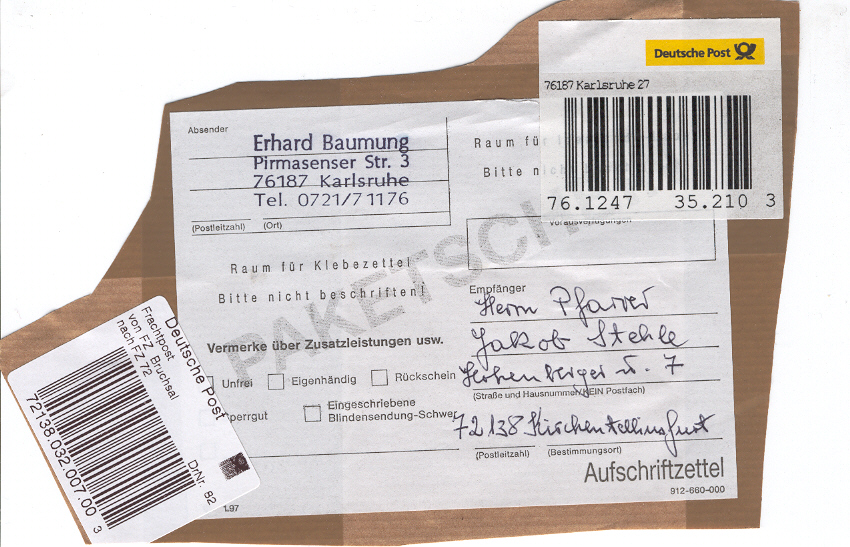 Deutsche Post
76187 Karlsruhe 27
76.1247 35.210 3
Absender
Erhard Baumung
Pirmasenser Str. 3
76187 Karlsruhe
Tel. 0721/71176
(Postleitzahl) (Ort)
Raum für
Bitte nich
Vorausverfügungen
PAKETSCH
Raum für Klebezettel
Bitte nicht beschriften!
Vermerke über Zusatzleistungen usw.
Unfrei Eigenhändig Rückschein
perrgut Eingeschriebene
Blindensendung-Schwer
Empfänger
Herrn Pfarrer
Jakob Stehle
7
(Straße und Hausnummer/KEIN Postfach)
72138 Kirchentellinsfurt
(Postleitzahl) (Bestimmungsort)
Aufschriftzettel
912-660-000
1.97
Deutsche Post
Frachtpost
von FZ Bruchsal
nach FZ 72
72138.032.007.00 3
DrNr. 82